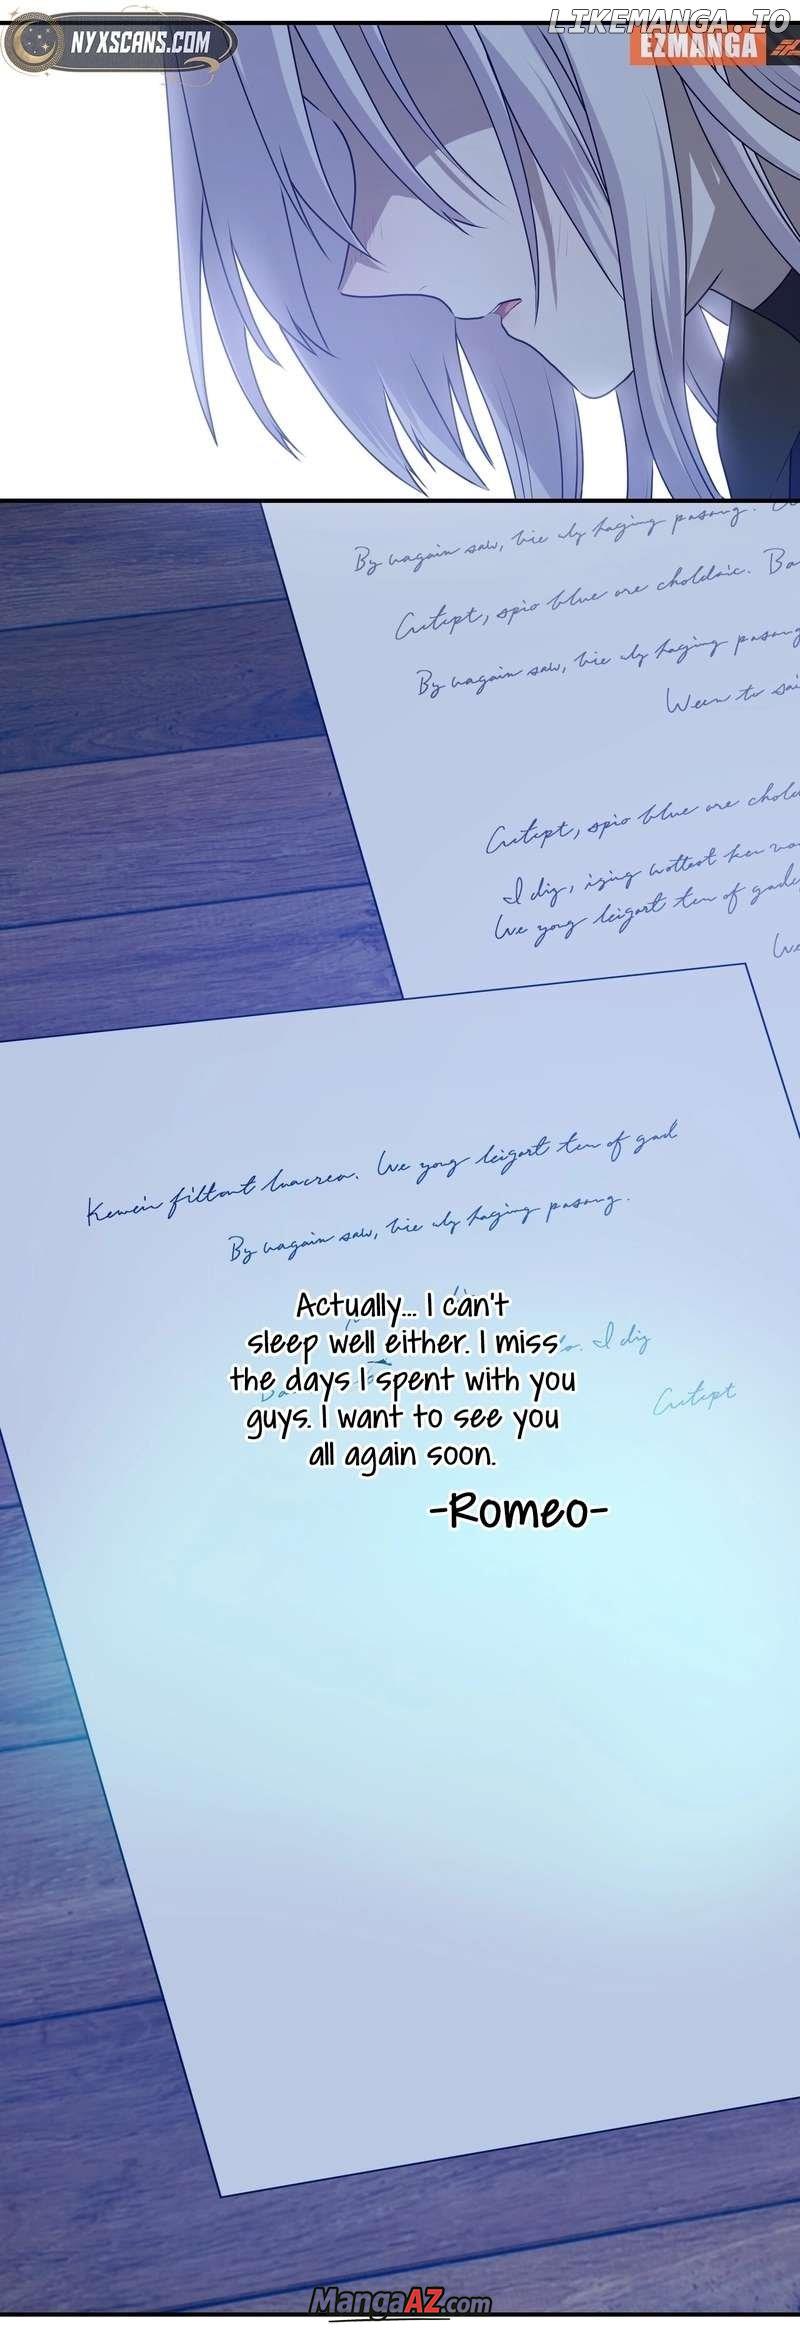 NYXSCANS.COM
LIKEMANGA.IO
EZMANGA
By uagain saw, bie uly haging pasong.
Cutept, spio blue are choldaic. Ba
By uagain saw, bie uly haging pasong
Ween to sai
Cutept, spio blue are cholda
I dig, iging wottest ken
We yong leigart ten of gade
We
Kewein filtont We yong leigart ten of gad
By uagain saw, bie uly haging pasong.
Actually... I can't
sleep well either. I miss
the days I spent with you
guys. I want to see you
all again soon.
I dig
Cutept
-Romeo-
MangaAZ.com